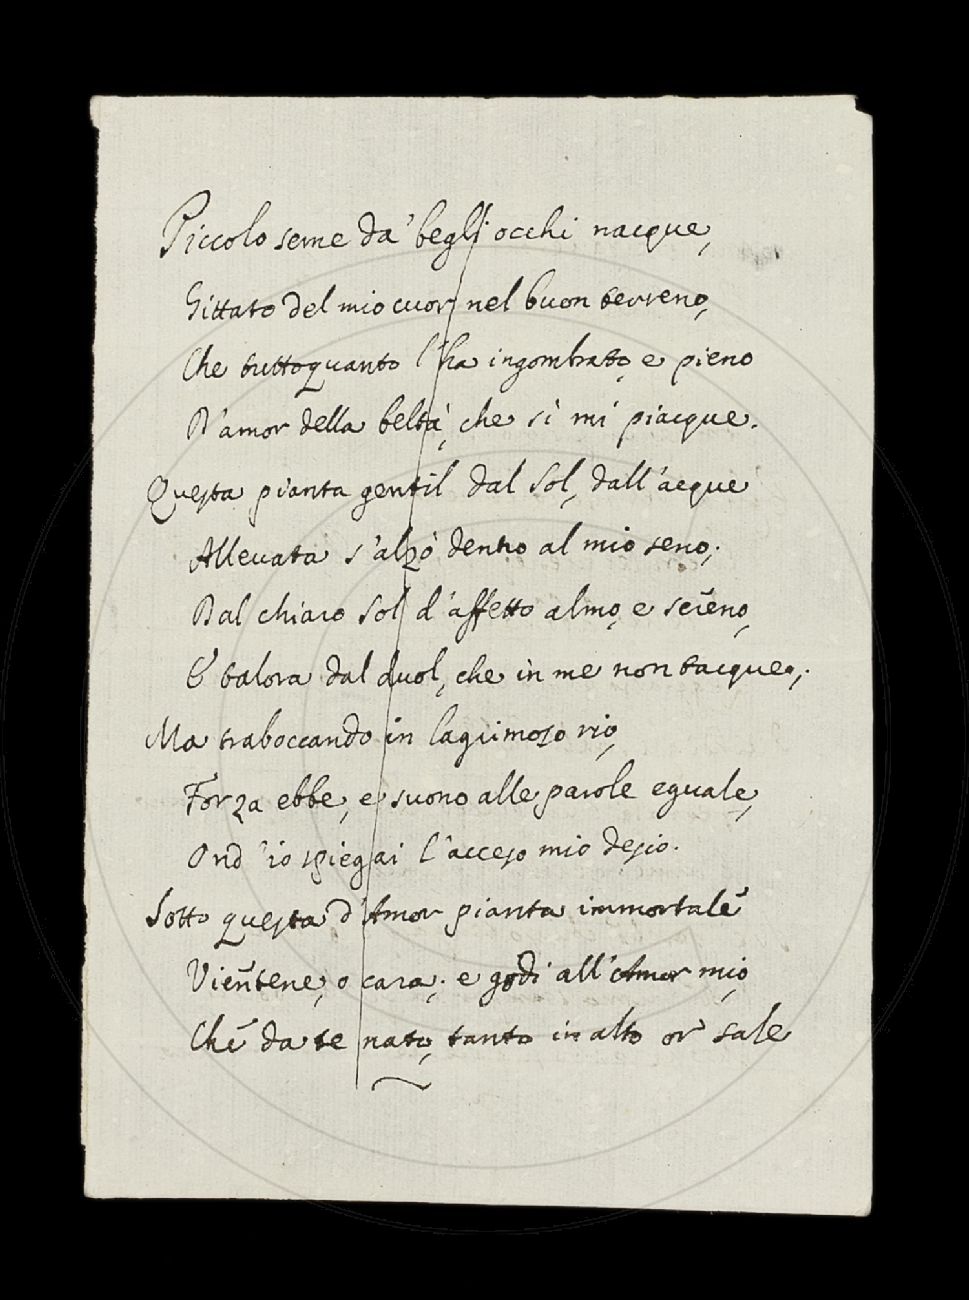 Piccolo seme da' begli occhi nacque,
Gittato del mio cuor nel buon terreno,
Che tuttoquanto l'ha ingombrato, e pieno
D'amor della beltà, che sì mi piacque.
Questa pianta gentil dal Sol, dall'acque
Allevata s'alzò dentro al mio seno;
Dal chiaro Sol d'affetto almo, e sereno,
E talora dal duol, che in me non tacque;
Ma traboccando in lagrimoso rio,
Forza ebbe, e suono alle parole eguale,
Ond'io spiegai l'acceso mio desio.
Sotto questa d'Amor pianta immortale
Vientene, o cara; e godi all'Amor mio,
Chè da te nato, tanto in alto or sale